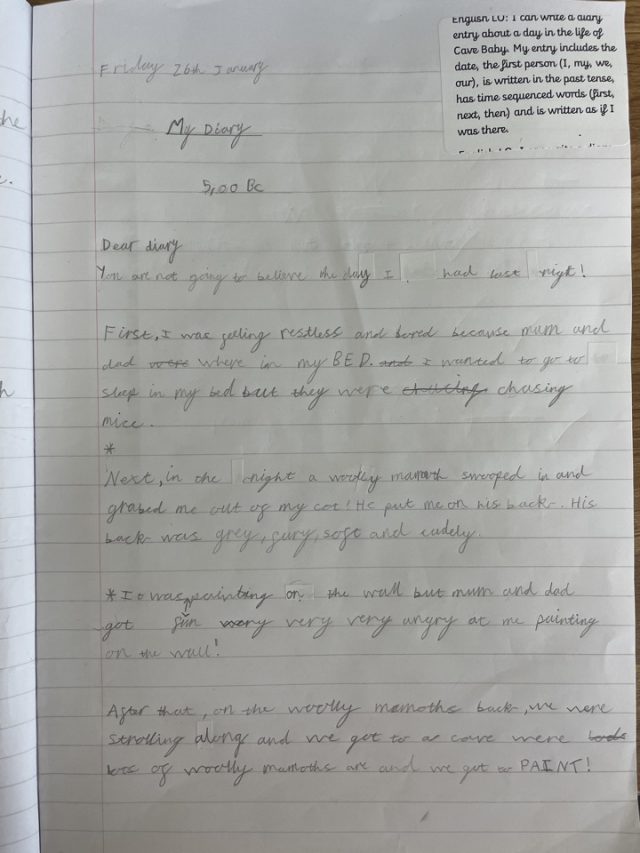 English LO: I can write a diary
entry about a day in the life of
Cave Baby. My entry includes the
date, the first person (I, my, we,
our), is written in the past tense,
has time sequenced words (first,
next, then) and is written as if I
was there.
Friday 26th January
My Diary
5,00 Bc
Dear diary
You are not going to believe the day I had last night!
First, I was feeling restless and bored because mum and
dad were where in my BED. and I wanted to go to
sleep in my bed but they were chasing
mice.
*
Next, in the night a woolly mamoth swooped in and
grabed me out of my cot! He put me on his back. His
back was grey, fury, soft and cudely.
* I was painting on the wall but mum and dad
got very very angry at me painting
on the wall!
After that, on the woolly mamoths back, we were
strolling along and we got to a cave were
lots of woolly mamoths are and we got to PAINT!
he